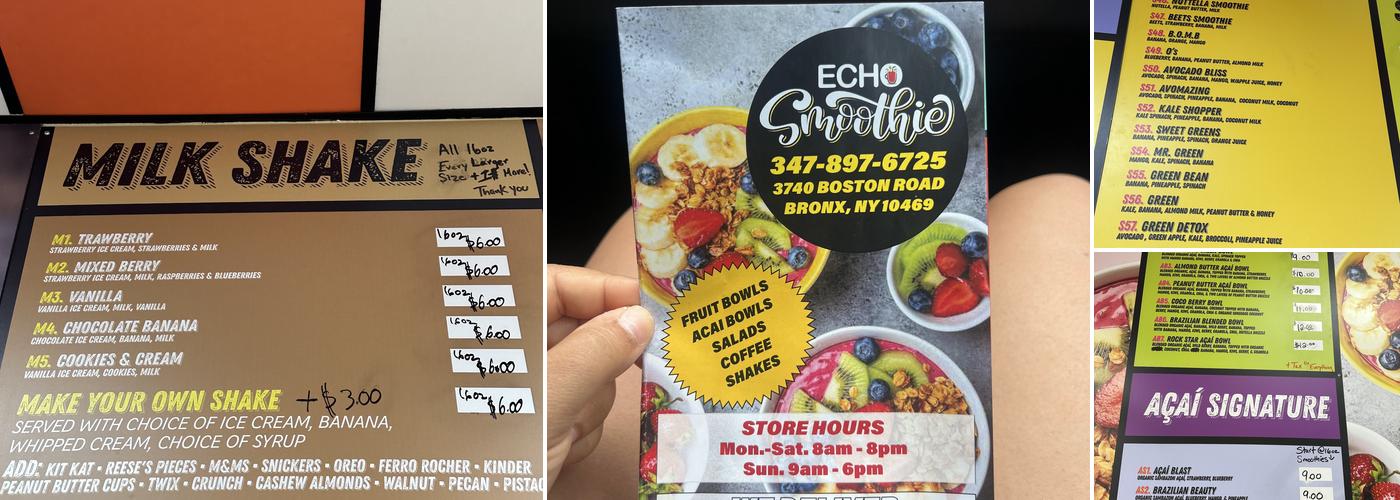 MILK SHAKE
All 16oz
Every Larger
Size + 1$ More!
Thank you
M1. TRAWBERRY
STRAWBERRY ICE CREAM, STRAWBERRIES & MILK
16oz $6.00
M2. MIXED BERRY
STRAWBERRY ICE CREAM, MILK, RASPBERRIES & BLUEBERRIES
16oz $6.00
M3. VANILLA
VANILLA ICE CREAM, MILK, VANILLA
16oz $6.00
M4. CHOCOLATE BANANA
CHOCOLATE ICE CREAM, BANANA, MILK
16oz $6.00
M5. COOKIES & CREAM
VANILLA ICE CREAM, COOKIES, MILK
16oz $6.00
MAKE YOUR OWN SHAKE + $3.00
16oz $6.00
SERVED WITH CHOICE OF ICE CREAM, BANANA,
WHIPPED CREAM, CHOICE OF SYRUP
ADD: KIT KAT • REESE'S PIECES • M&MS • SNICKERS • OREO • FERRO ROCHER • KINDER
PEANUT BUTTER CUPS • TWIX • CRUNCH • CASHEW ALMONDS • WALNUT • PECAN • PISTAC
ECHO
Smoothie
347-897-6725
3740 BOSTON ROAD
BRONX, NY 10469
FRUIT BOWLS
ACAI BOWLS
SALADS
COFFEE
SHAKES
STORE HOURS
Mon.-Sat. 8am - 8pm
Sun. 9am - 6pm
WE DELIVER
S46. NUTTELLA SMOOTHIE
NUTELLA, PEANUT BUTTER, MILK
S47. BEETS SMOOTHIE
BEETS, STRAWBERRY, BANANA, MILK
S48. B.O.M.B
BANANA, ORANGE, MANGO
S49. O's
BLUEBERRY, BANANA, PEANUT BUTTER, ALMOND MILK
S50. AVOCADO BLISS
AVOCADO, SPINACH, BANANA, MANGO, W/APPLE JUICE, HONEY
S51. AVOMAZING
AVOCADO, SPINACH, PINEAPPLE, BANANA, COCONUT MILK, COCONUT
S52. KALE SHOPPER
KALE SPINACH, PINEAPPLE, BANANA, COCONUT MILK
S53. SWEET GREENS
BANANA, PINEAPPLE, SPINACH, MILK
S54. MR. GREEN
MANGO, KALE, SPINACH, BANANA
S55. GREEN BEAN
BANANA, PINEAPPLE, SPINACH
S56. GREEN
KALE, BANANA, ALMOND MILK, PEANUT BUTTER & HONEY
S57. GREEN DETOX
AVOCADO, GREEN APPLE, KALE, BROCCOLI, PINEAPPLE JUICE
9.00
AB3. ALMOND BUTTER AÇAÍ BOWL
10.00
AB4. PEANUT BUTTER AÇAÍ BOWL
AB5. COCO BERRY BOWL
AB6. BRAZILIAN BLENDED BOWL
AB7. ROCK STAR AÇAÍ BOWL
+ Tax
AÇAÍ SIGNATURE
Start @ 16oz
Smoothies
AS1. AÇAÍ BLAST
ORGANIC SAMBAZON AÇAÍ, STRAWBERRY, BLUEBERRY
9.00
AS2. BRAZILIAN BEAUTY
9.00